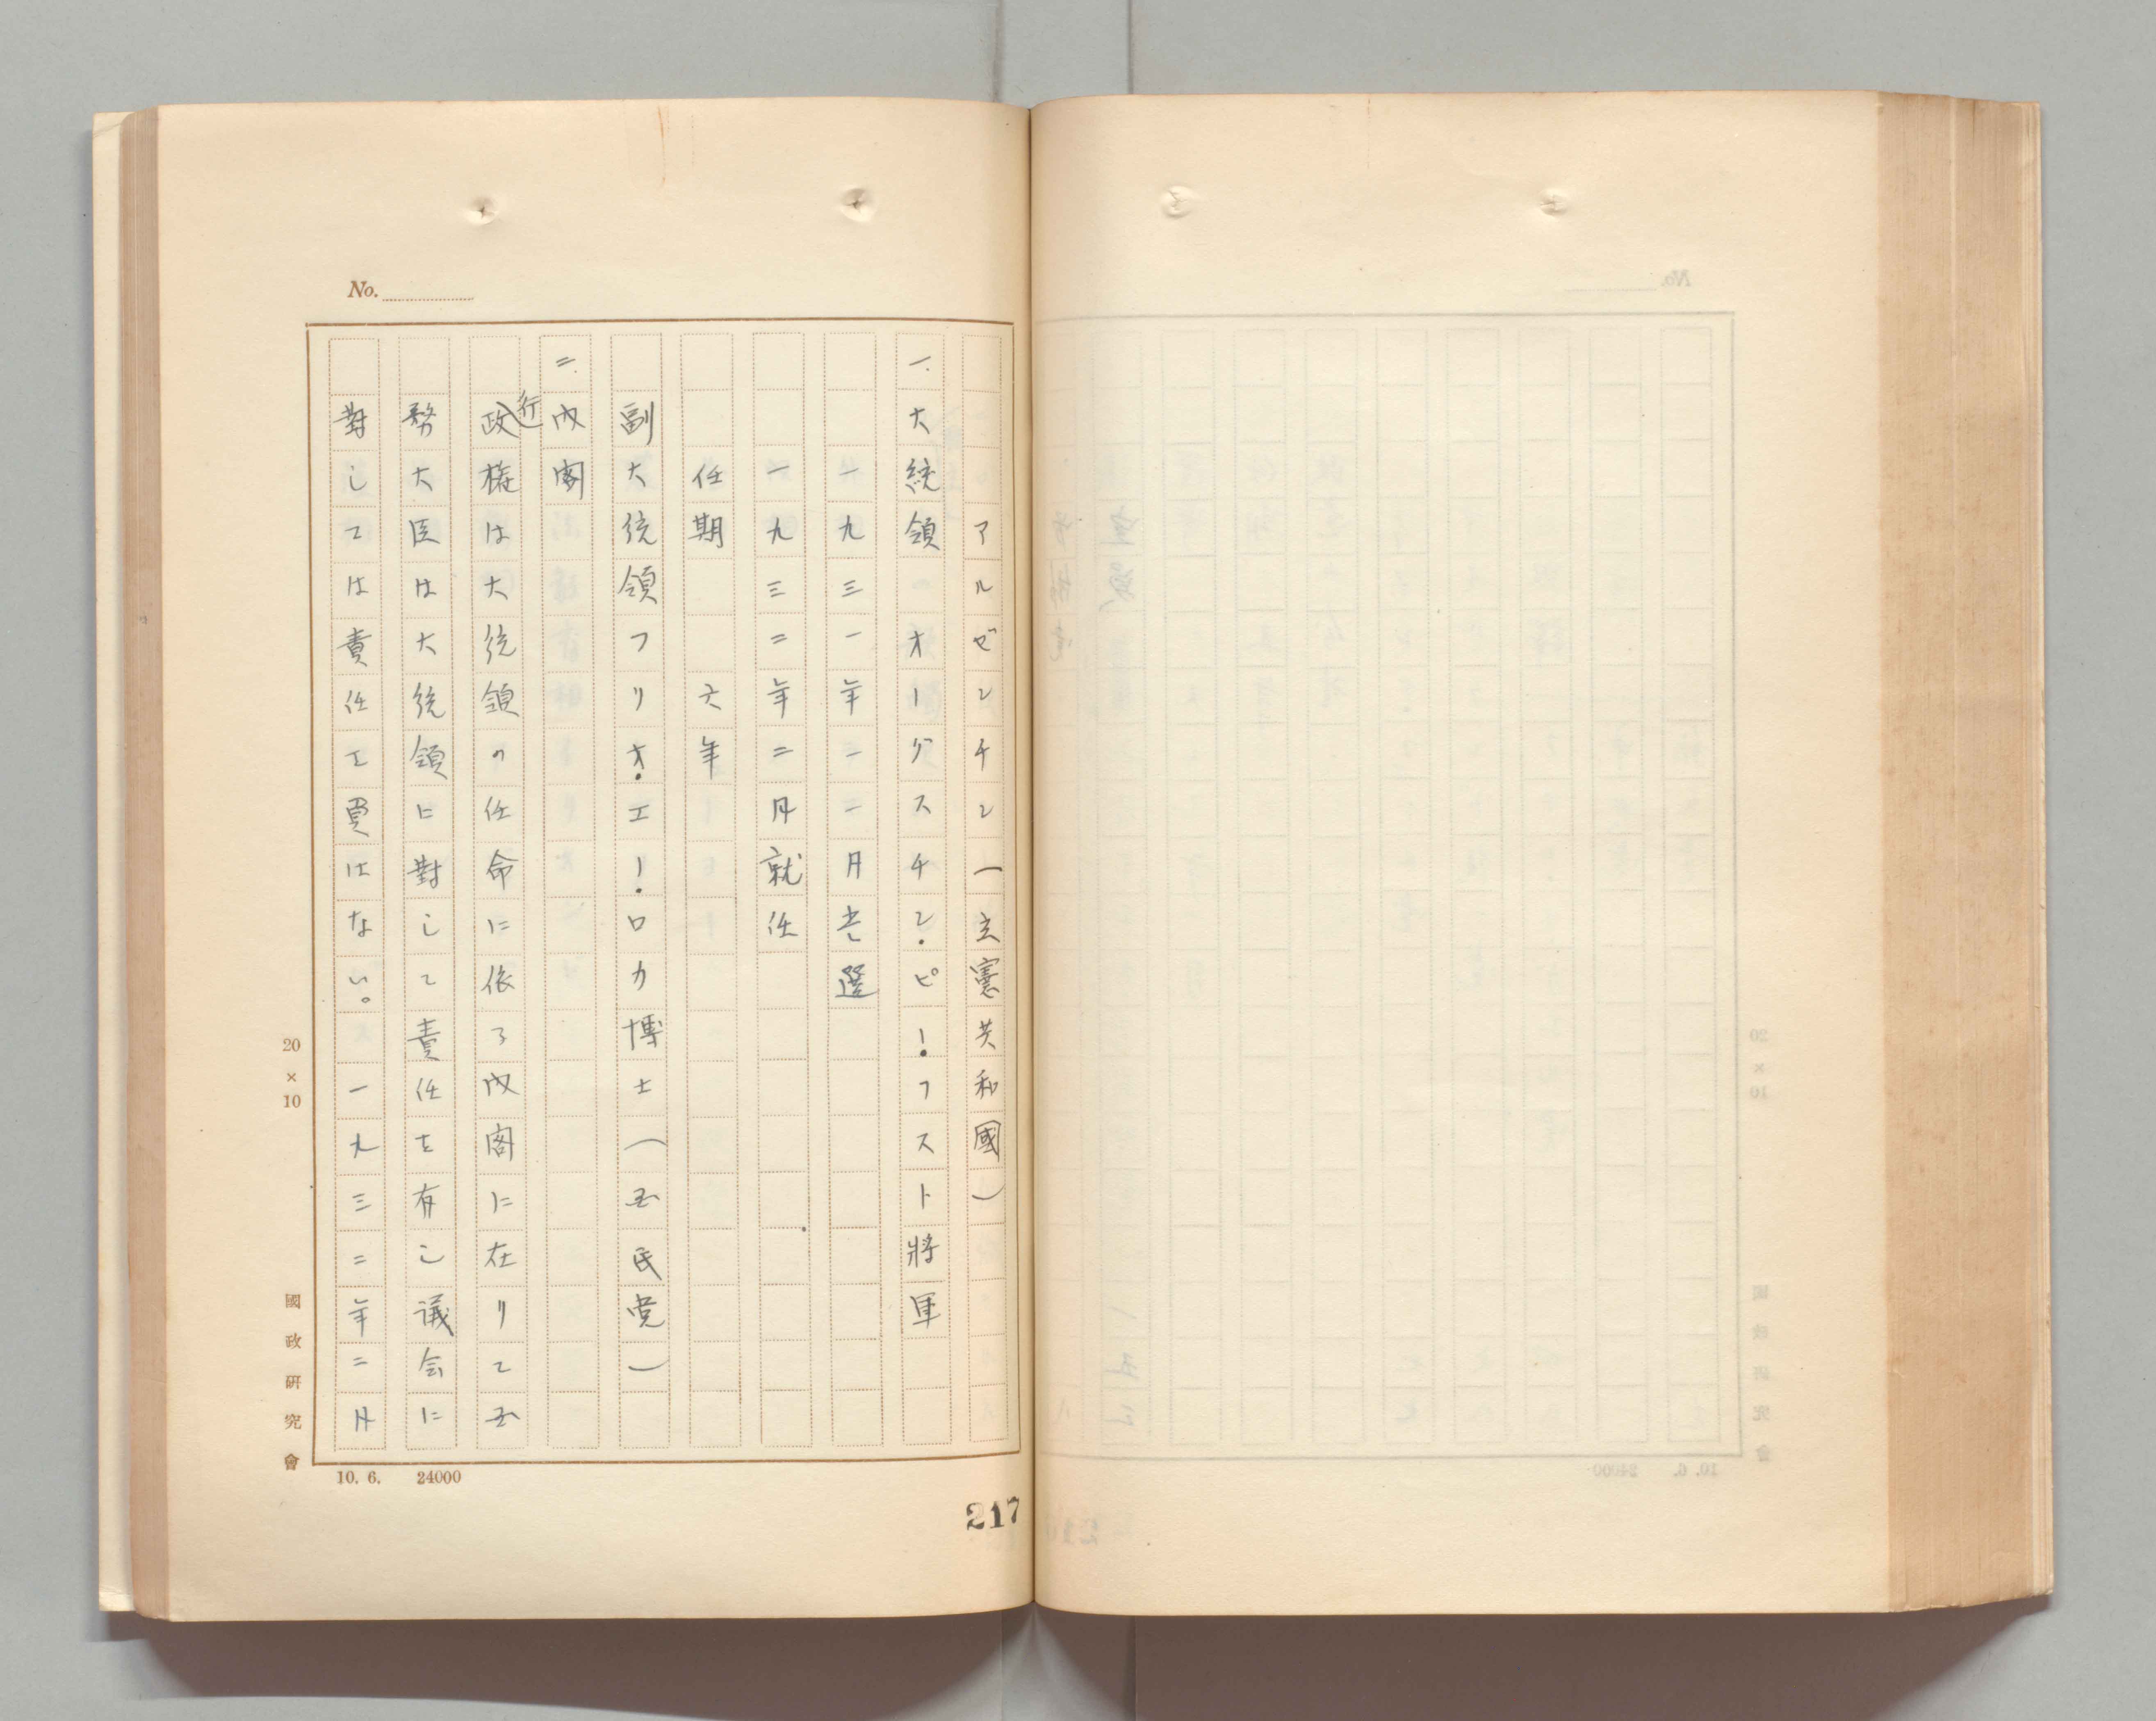 No.
アルゼンチン（立憲共和國）
一.大統領 オーグスチン.ピー.フスト將軍
一九三一年一一月当選
一九三二年二月就任
任期 六年
副大統領フリオ.エー.ロカ博士（国民党）
二.内閣
行政権は大統領の任命に依る内閣に在りて国
務大臣は大統領に對して責任を有し議会に
對しては責任を負はない。 一九三二年二月
20×10
國政研究會
10. 6. 24000
217